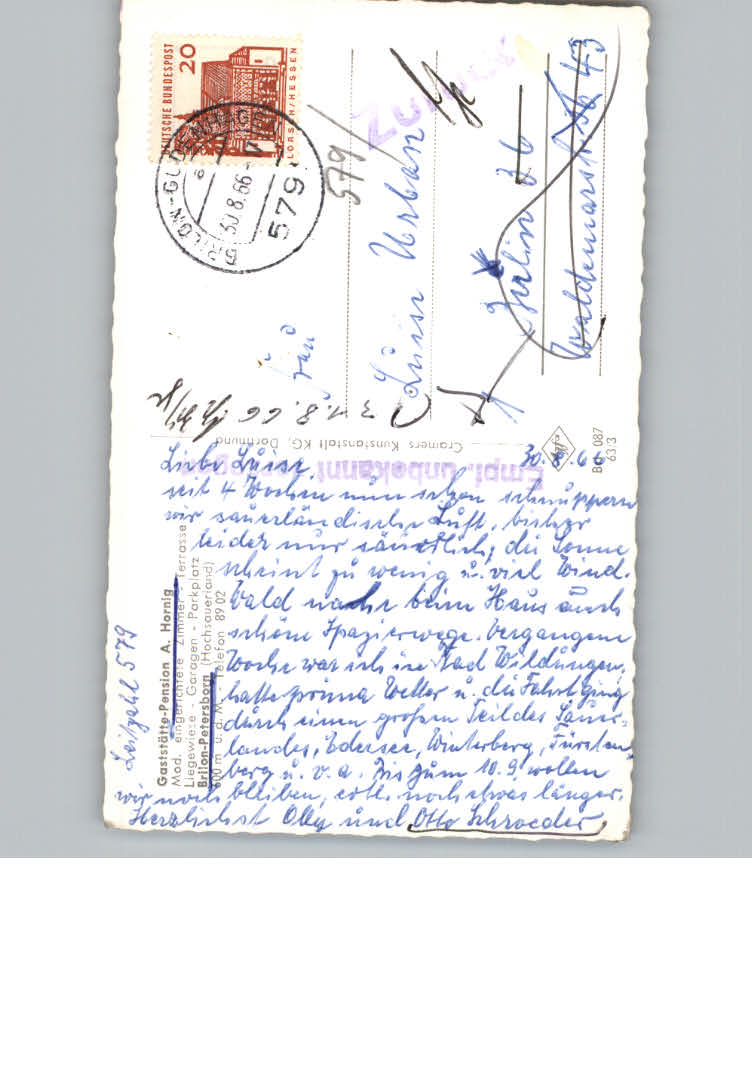 30.8.66
Liebe Luise.
seit 4 Wochen nun schon schnuppern
wir sauerländische Luft, bisher
leider nur säuerlich, die Sonne
scheint zu wenig u. viel Wind.
Wald nahe beim Haus auch
schöne Spazierwege. Vergangene
Woche war ich in Bad Wildungen,
hatte prima Wetter u. die Fahrt ging
durch einen großen Teil des Sauer-
landes, Edersee, Winterberg, Fürsten-
berg u. v. a. Bis zum 10.9. wollen
wir noch bleiben, evtl. noch etwas länger.
Herzlichst Olly und Otto Schroeder
Leitzahl 579
Gaststätte-Pension A. Hornig
Mod. eingerichtete Zimmer - Terrasse
Liegewiese - Garagen - Parkplatz
Brilon-Petersborn (Hochsauerland)
600 m ü. d. M. Telefon 89 02
Crainers Kunstanstalt KG, Dortmund
Empf. unbekannt
Agfa
Bd 087
63/3
DEUTSCHE BUNDESPOST
20
LORSCH/HESSEN
579
30.8.66
579/
Zurück
Frau
Luise Urban
1 Berlin 36
Waldemarstr. 43
31.8.66